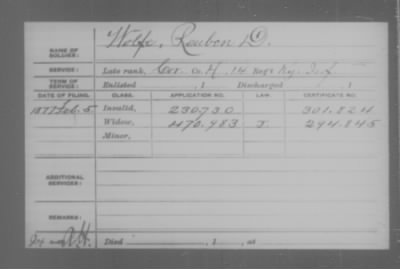 NAME OF SOLDIER: Wolfe, Reubon D.
SERVICE: Late rank, Cor. Co. H, 14 Reg't Ky. Inf
TERM OF SERVICE: Enlisted , 1 Discharged , 1
DATE OF FILING. CLASS. APPLICATION NO. LAW. CERTIFICATE NO.
1877 Feb. 5 Invalid, 230730 301.824
Widow, 470.983 J. 294.845
Minor,
ADDITIONAL SERVICES:
REMARKS:
Died , 1 , at